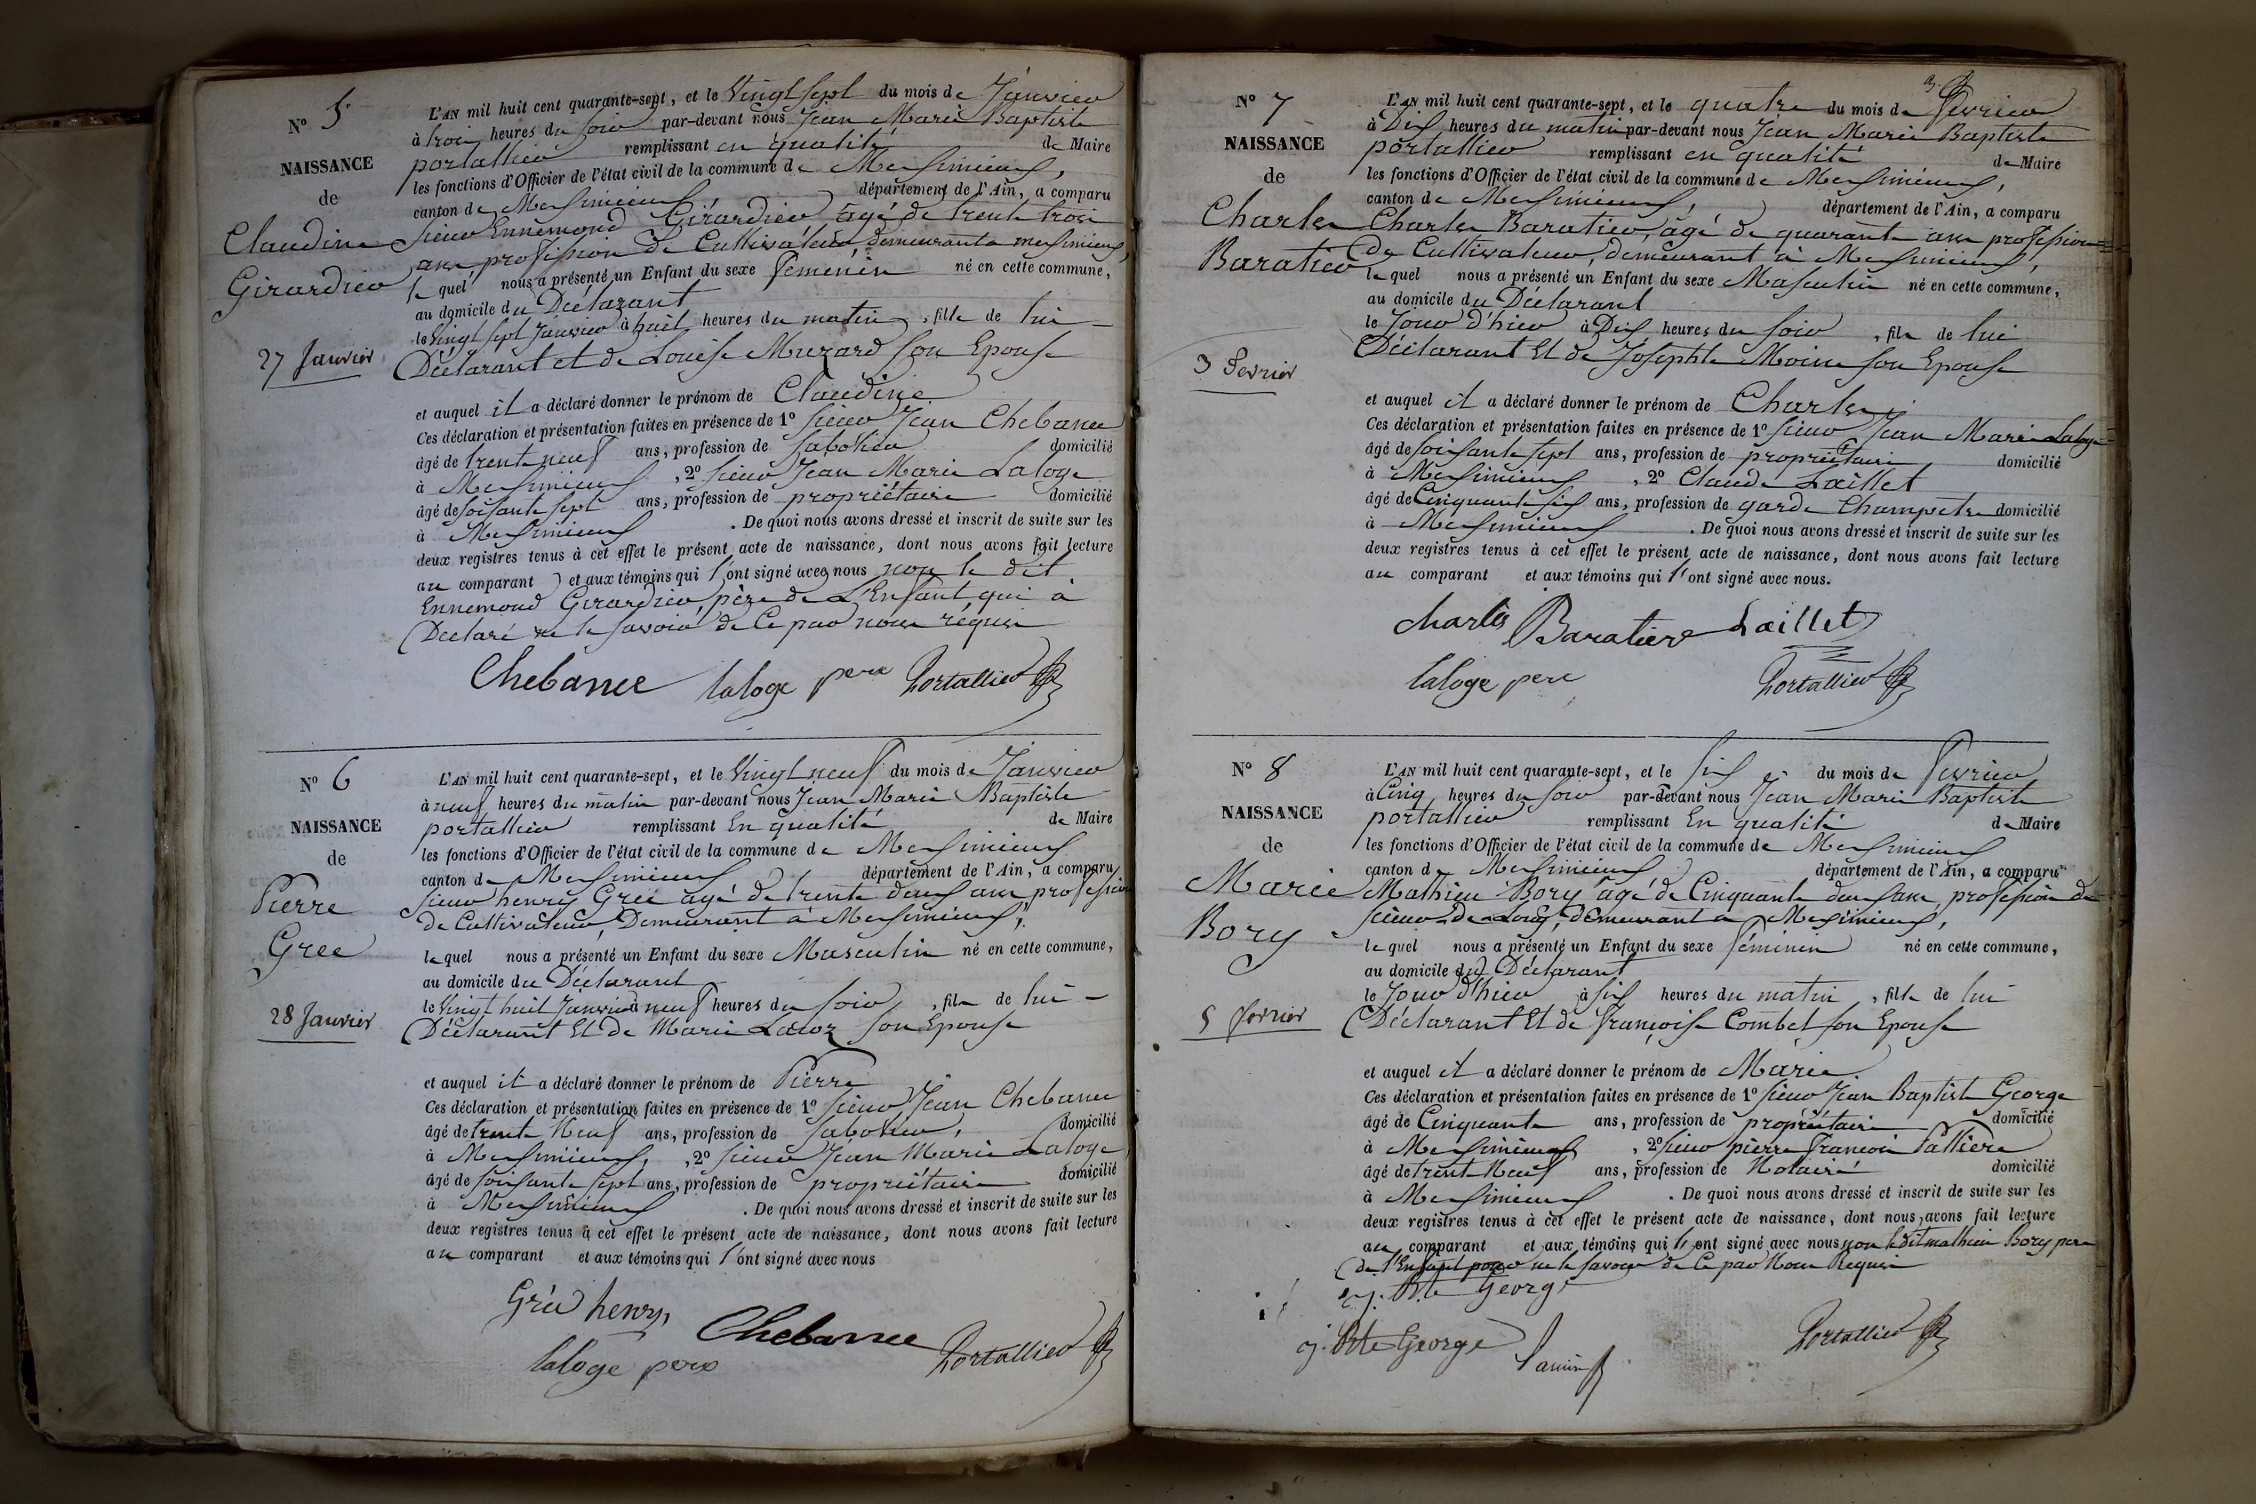 N° 5
NAISSANCE
de
Claudine
Girardier
27 Janvier
L'AN mil huit cent quarante-sept, et le Vingt sept du mois de Janvier
à trois heures du soir par-devant nous Jean Marie Baptiste
portallier remplissant en qualité de Maire
les fonctions d'Officier de l'état civil de la commune de Meximieux,
canton de Meximieux département de l'Ain, a comparu
sieur Ennemond Girardier agé de trente trois
ans profession de Cultivateur, demeurant a meximieux,
le quel nous a présenté un Enfant du sexe Feminin né en cette commune,
au domicile du Déclarant
le Vingt sept Janvier à huit heures du matin, fille de lui
Déclarant et de Louise Muzard son Epouse
et auquel il a déclaré donner le prénom de Claudine
Ces déclaration et présentation faites en présence de 1° sieur Jean Chebance
âgé de trente neuf ans, profession de sabotier domicilié
à Meximieux, 2° sieur Jean Marie Laloge
âgé de soixante sept ans, profession de propriétaire domicilié
à Meximieux. De quoi nous avons dressé et inscrit de suite sur les
deux registres tenus à cet effet le présent acte de naissance, dont nous avons fait lecture
au comparant et aux témoins qui l'ont signé avec nous non le dit
Ennemond Girardier, père de L'Enfant qui à
Déclaré ne le savoir de Ce par nous réquis
Chebance laloge pere Portallier
N° 6
NAISSANCE
de
Pierre
Gree
28 Janvier
L'AN mil huit cent quarante-sept, et le Vingt neuf du mois de Janvier
à neuf heures du matin par-devant nous Jean Marie Baptiste
portallier remplissant En qualité de Maire
les fonctions d'Officier de l'état civil de la commune de Meximieux
canton de Meximieux département de l'Ain, a comparu
sieur henry Grée agé de trente deux ans, profession
de Cultivateur, Demeurant à Meximieux,
le quel nous a présenté un Enfant du sexe Masculin né en cette commune,
au domicile du Déclarant
le Vingt huit Janvier à neuf heures du soir, fils de lui
Déclarant Et de Marie son Epouse
et auquel il a déclaré donner le prénom de Pierre
Ces déclaration et présentation faites en présence de 1° sieur Jean Chebance
âgé de trente Neuf ans, profession de sabotier, domicilié
à Meximieux, 2° sieur Jean Marie Laloge
âgé de soixante sept ans, profession de propriétaire domicilié
à Meximieux. De quoi nous avons dressé et inscrit de suite sur les
deux registres tenus à cet effet le présent acte de naissance, dont nous avons fait lecture
au comparant et aux témoins qui l'ont signé avec nous
Grée henry Chebance
laloge pere Portallier
N° 7
NAISSANCE
de
Charles
Baratier
3 Fevrier
L'AN mil huit cent quarante-sept, et le quatre du mois de Fevrier
à Dix heures du matin par-devant nous Jean Marie Baptiste
portallier remplissant en qualité de Maire
les fonctions d'Officier de l'état civil de la commune de Meximieux,
canton de Meximieux, département de l'Ain, a comparu
Charles Baratier, âgé de quarante ans profession
de Cultivateur, demeurant à Meximieux,
le quel nous a présenté un Enfant du sexe Masculin né en cette commune,
au domicile du Déclarant
le Jour d'hier à Dix heures du soir, fils de lui
Déclarant Et de Josephte Moine son Epouse
et auquel il a déclaré donner le prénom de Charles
Ces déclaration et présentation faites en présence de 1° sieur Jean Marie Laloge
âgé de soixante sept ans, profession de propriétaire domicilié
à Meximieux, 2° Claude Laillet
âgé de Cinquante six ans, profession de garde Champetre domicilié
à Meximieux. De quoi nous avons dressé et inscrit de suite sur les
deux registres tenus à cet effet le présent acte de naissance, dont nous avons fait lecture
au comparant et aux témoins qui l'ont signé avec nous.
charles Baratier Laillet
laloge pere Portallier
N° 8
NAISSANCE
de
Marie
Bory
5 fevrier
L'AN mil huit cent quarante-sept, et le six du mois de Fevrier
à Cinq heures du soir par-devant nous Jean Marie Baptiste
portallier remplissant En qualité de Maire
les fonctions d'Officier de l'état civil de la commune de Meximieux
canton de Meximieux département de l'Ain, a comparu
Mathieu Bory âgé de Cinquante deux ans, profession de
scieur de Long, demeurant a Meximieux,
le quel nous a présenté un Enfant du sexe féminin né en cette commune,
au domicile du Déclarant
le Jour d'hier à six heures du matin, fille de lui
Déclarant Et de Françoise Combet son Epouse
et auquel il a déclaré donner le prénom de Marie.
Ces déclaration et présentation faites en présence de 1° sieur Jean Baptiste George
âgé de Cinquante ans, profession de propriétaire domicilié
à Meximieux, 2° sieur pierre françois
âgé de trente Neuf ans, profession de Notaire domicilié
à Meximieux. De quoi nous avons dressé et inscrit de suite sur les
deux registres tenus à cet effet le présent acte de naissance, dont nous avons fait lecture
au comparant et aux témoins qui l'ont signé avec nous non ledit mathieu Bory pere
de l'Enfant pour ne le savoir de Ce par Nous Requis
j. Bte George
j. Bte George Portallier